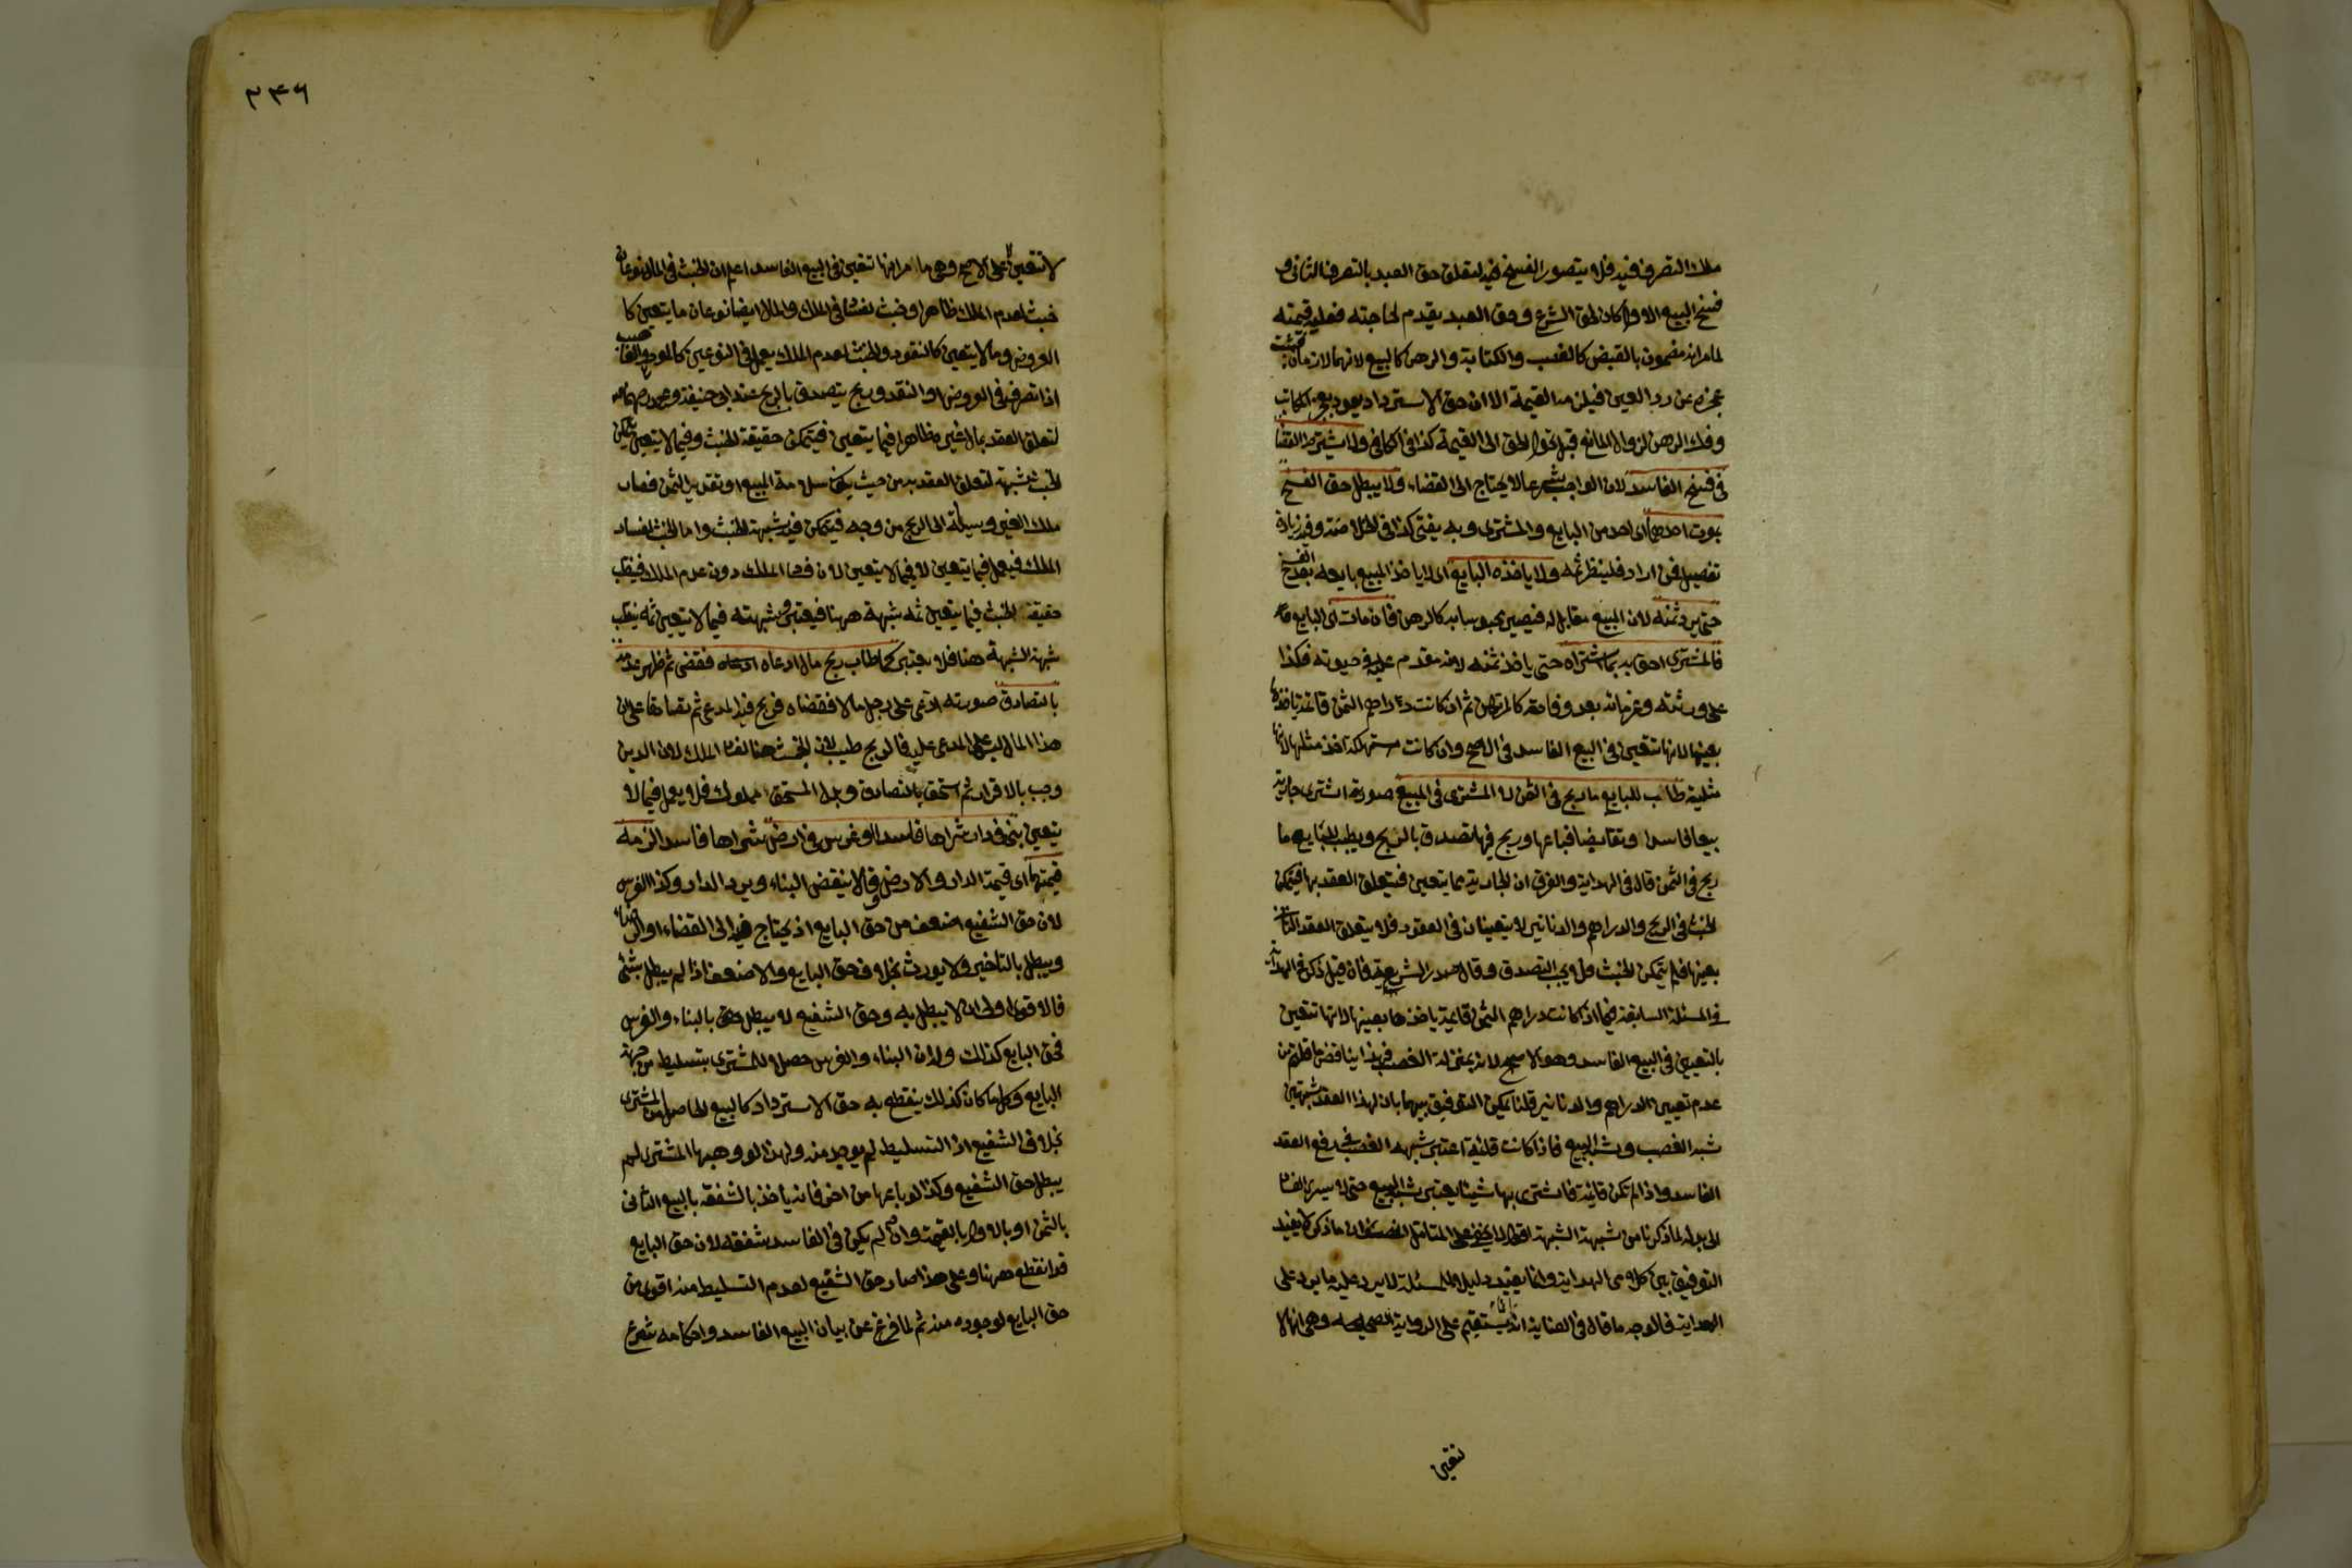 ملك التصرف فيه فلا يتصور الفسخ فيه لتعلق حق العبد بالتصرف الثانى و
فسخ البيع الاول كان لحق الشرع وحق العبد يقدم لحاجته فعليه قيمته
لما مر انه مضمون بالقبض كالغصب والكتابة والرهن كالبيع لانهما لازمان
عجزه عن رد العين فيلزمه القيمة الا ان حق الاسترداد يعود بعجز المكاتب
وفك الرهن لزوال المانع قبل تحول الحق الى القيمة كذا فى الكافى ولا يشترط القضاء
فى فسخ الفاسد لان الواجب شرعا لا يحتاج الى القضاء ولا يبطل حق الفسخ
بموت احدهما اى احد من البايع والمشترى وبه يفتى كذا فى الخلاصة وفيه زيادة
تفصيل فمن اراد فلينظر ثمه ولا ياخذه البايع اى لا ياخذ المبيع بايعه بعد الفسخ
حتى يرد ثمنه لان المبيع مقابل له فيصير محبوسا به كالرهن فان مات اى البايع
فالمشترى احق به بما اشتراه حتى ياخذ ثمنه لانه مقدم عليه فى حيوته فكذا
على ورثته وغرمائه بعد وفاته كالمرتهن ثم ان كانت دراهم الثمن قائمة ياخذها
بعينها لانها تتعين فى البيع الفاسد فى الاصح وان كانت مستهلكة اخذ مثلها لانها
مثلية طاب للبايع ما ربح فى الثمن لا المشترى فى المبيع صورته اشترى جارية
بيعا فاسدا وتقابضا فباعها وربح فيها تصدق بالربح ويطيب للبايع ما
ربح فى الثمن قال فى الهداية والفرق ان الجارية مما يتعين فيتعلق العقد بها فيتمكن
الخبث فى الربح والدراهم والدنانير لا يتعينان فى العقود فلا يتعلق العقد الثانى
بعينها فلم يتمكن الخبث فلا يجب التصدق وقال صدر الشريعة فان قيل ذكر فى الهداية
فى المسئلة السابقة فيما اذا كانت دراهم الثمن قائمة ياخذها بعينها لانها تتعين
بالتعيين فى البيع الفاسد وهو الاصح لانه بمنزلة الغصب فهذا يناقض ما قلتم من
عدم تعيين الدراهم والدنانير قلنا يمكن التوفيق بينهما بان لهذا العقد شبهين
شبه الغصب وشبه البيع فاذا كانت قائمة اعتبر شبهه الغصب فى رفع العقد
الفاسد واذا لم تكن قائمة فاشترى بها شيئا يعتبر شبه البيع حتى لا يسرى الفساد
الى بدله لما ذكرنا من شبهة الشبهة اقول لا يخفى على المتامل المنصف ان ما ذكر لا يفيد
التوفيق بين كلامى الهداية وانما يفيد دليلا للمسئلة لا يرد عليه ما يرد على
الهداية فالوجه ما قال فى العناية انه انما يستقيم على الرواية الصحيحة وهى انها لا
تتعين
٣٣٦
لا تتعين لا على الاصح وهى ما مر انها تتعين فى البيع الفاسد اعلم ان الخبث فى المال نوعان
خبث لعدم الملك ظاهرا وخبث لفساد فى الملك والمال ايضا نوعان ما يتعين كا
العروض وما لا يتعين كالنقود والخبث لعدم الملك يعمل فى النوعين كالمودع والغاصب
اذا تصرف فى العروض او النقد وربح يتصدق بالربح عند ابى حنيفة ومحمد رحمهما الله
لتعلق العقد بمال غيره ظاهرا فيما يتعين فيتمكن حقيقة الخبث وفيما لا يتعين يتمكن
الخبث شبهة لتعلق العقد به من حيث يكون سلامة المبيع او تقدير الثمن فصار
ملك الغير وسيلة الى الربح من وجه فيتمكن فيه شبهة الخبث واما الخبث لفساد
الملك فيعمل فيما يتعين لا فيما لا يتعين لان فساد الملك دون عدم الملك فينقلب
حقيقة الخبث فيما يتعين ثمه شبهة ههنا فيعتبر وشبهته فيما لا يتعين ثمه ينقلب
شبهة الشبهة هنا فلا يعتبر كما طاب ربح مال ادعاه فقضى ثم ظهر عدمه
بالتصادق صورته ادعى على رجل مالا فقضاه فربح فيه المدعى ثم تصادقا على ان
هذا المال ليس على المدعى عليه فالربح طيب لان الخبث هنا لفساد الملك لان الدين
وجب بالاقرار ثم استحق بالتصادق وبدل المستحق مملوك فلا يعمل فيما لا
يتعين بنى فى دار شراها فاسدا او غرس فى ارض شراها فاسدا لزمه
قيمتهما اى قيمة الدار والارض وقالا ينقض البناء ويرد الدار وكذا الغرس
لان حق الشفيع اضعف من حق البايع اذ يحتاج فيه الى القضاء او الرضاء
ويبطل بالتاخير ولا يورث بخلاف حق البايع والاضعف اذا لم يبطل بشئ
فالاقوى اولى ان لا يبطل به وحق الشفيع لا يبطل بالبناء والغرس
فحق البايع كذلك وله ان البناء والغرس حصل للمشترى بتسليط من جهة
البايع وكل ما كان كذلك ينقطع به حق الاسترداد كالبيع الحاصل من المشترى
بخلاف الشفيع اذ التسليط لم يوجد منه ولهذا لو وهبها المشترى لم
يبطل حق الشفيع وكذا لو باعها من اخر فانه ياخذ بالشفعة بالبيع الثانى
بالثمن او بالاول بالقيمة وان لم يكن فى الفاسد شفعة لان حق البايع
قد انقطع ههنا وعلى هذا صار حق الشفيع لعدم التسليط منه اقوى من
حق البايع لوجوده منه ثم لما فرغ عن بيان البيع الفاسد واحكامه شرع